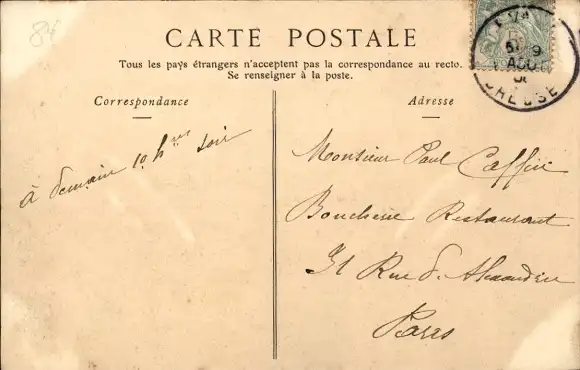 CARTE POSTALE
Tous les pays étrangers n'acceptent pas la correspondance au recto.
Se renseigner à la poste.
Correspondance
Adresse
à demain 10 hres soir
Monsieur Paul
Boucherie Restaurant
31 Rue d'Alexandrie
Paris
9
AOU
CREUSE